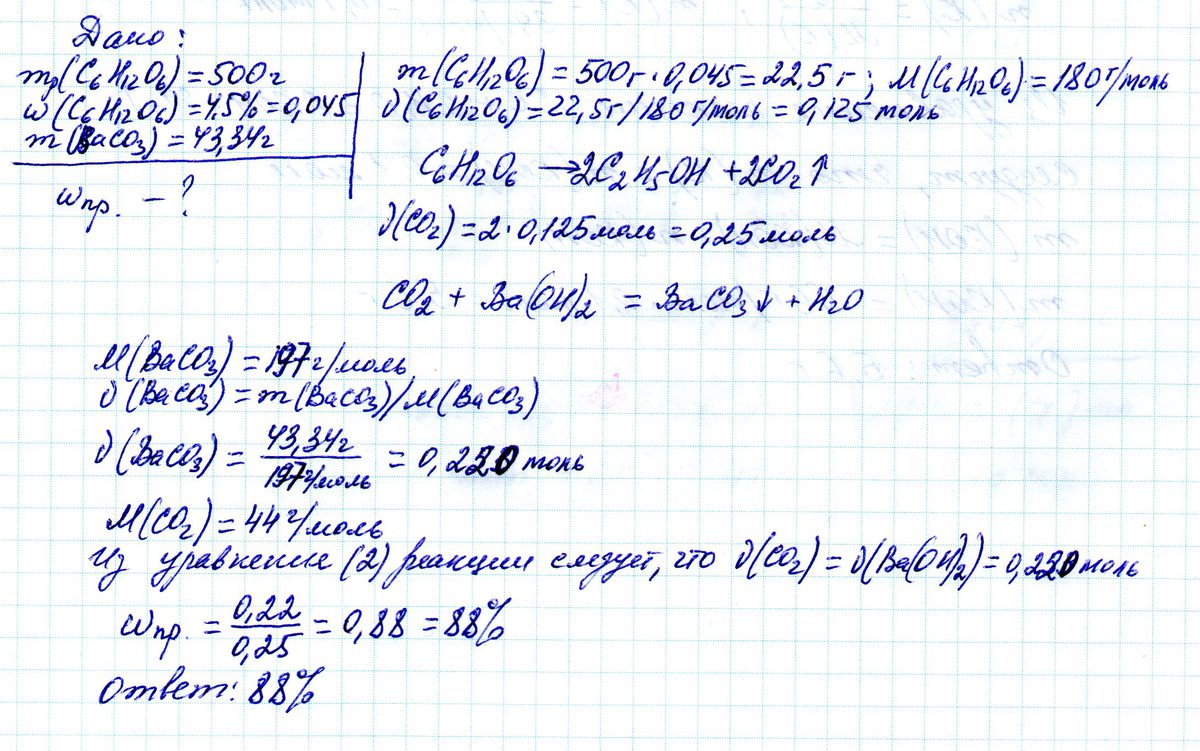 Дано:
mр(C6H12O6) = 500г
ω(C6H12O6) = 4.5% = 0,045
m(BaCO3) = 43,34г
ωпр. – ?
m(C6H12O6) = 500г · 0,045 = 22,5 г ; M(C6H12O6) = 180 г/моль
ν(C6H12O6) = 22,5г / 180 г/моль = 0,125 моль
C6H12O6 → 2C2H5OH + 2CO2↑
ν(CO2) = 2 · 0,125 моль = 0,25 моль
CO2 + Ba(OH)2 = BaCO3↓ + H2O
M(BaCO3) = 197 г/моль
ν(BaCO3) = m(BaCO3)/M(BaCO3)
ν(BaCO3) = 43,34г / 197г/моль = 0,220 моль
M(CO2) = 44 г/моль
Из уравнения (2) реакции следует, что ν(CO2) = ν(Ba(OH)2) = 0,220 моль
ωпр. = 0,22 / 0,25 = 0,88 = 88%
Ответ: 88%